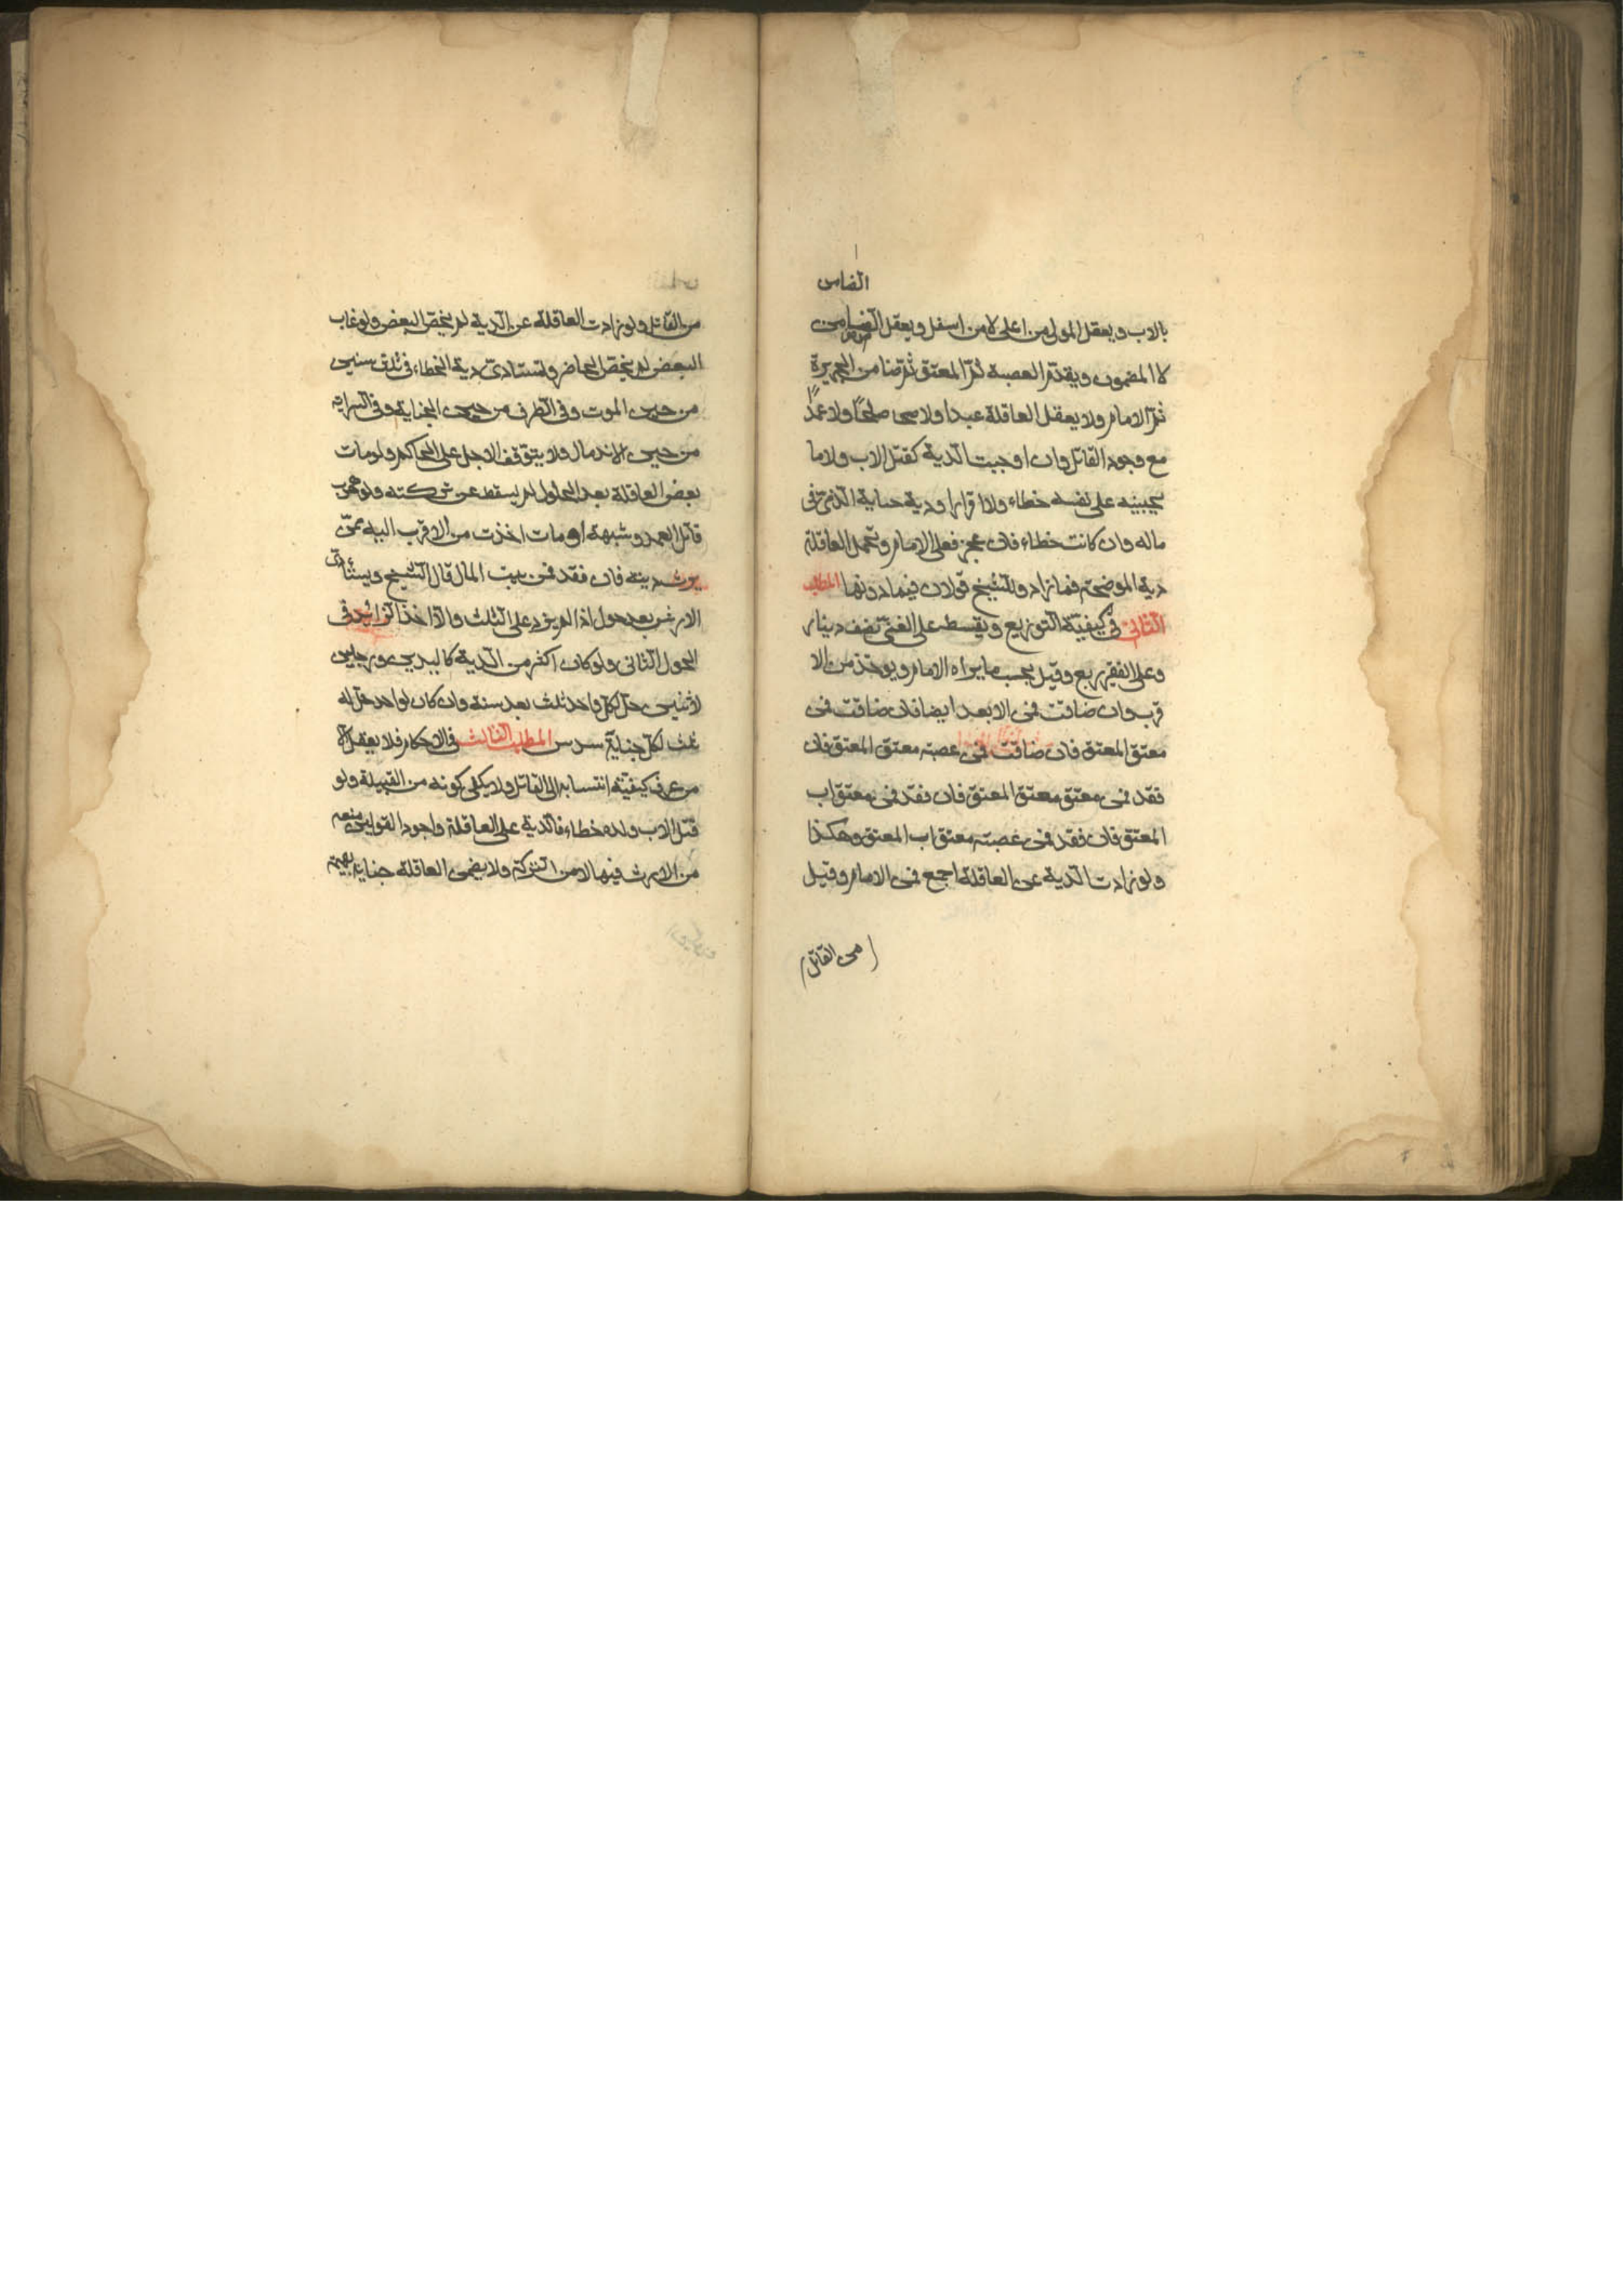 الضامن
بالاب ويعقل المولى من اعلى لا من اسفل ويعقل الضامن
لا المضمون ويقدّم العصبة ثمّ المعتق ثمّ ضامن الجريرة
ثمّ الامام ولا يعقل العاقلة عبدا ولا صلحًا ولا عمدًا
مع وجود القاتل وان اوجبت الدّية كقتل الاب ولا ما
يجنيه على نفسه خطاء ولا اقرارا ودية جناية الذّمّى فى
ماله وان كانت خطاء فان عجز فعلى الامام وتحمل العاقلة
دية الموضحة فما زاد وللشّيخ قولان فيما دونها المطلب
الثّانى فى كيفيّة التّوزيع ويقسط على الغنىّ نصف دينار
وعلى الفقير ربع وقيل بحسب ما يراه الامام ويوخذ من الا
قرب وان ضاقت فمن الابعد ايضا فان ضاقت فمن
معتق المعتق فان ضاقت فمن عصبة معتق المعتق فان
فقد فمن معتق معتق المعتق فان فقد فمن معتق اب
المعتق فان فقد فمن عصبة معتق اب المعتق وهكذا
ولو زادت الدّية عن العاقلة اجمع فمن الامام وقيل
من القاتل
من القاتل ولو زادت العاقلة عن الدّية لم يختصّ البعض ولو غاب
البعض لم يختصّ الحاضر وتستادى دية الخطاء فى ثلث سنين
من حين الموت وفى الطّرف من حين الجناية وفى السّراية
من حين الاندمال ولا يتوّقف الاجل على الحاكم ولو مات
بعض العاقلة بعد الحلول لم يسقط عن تركته ولو هرب
قاتل العمد وشبهه او مات اخذت من الاقرب اليه ممّن
يرث ديته فان فقد فمن بيت المال قال الشّيخ ويستأدى
الارش بعد حول اذا لم يزد على الثلث والّا اخذ الزّائد فى
الحول الثّانى ولو كان اكثر من الدّية كاليدين ورجلين
لاثنين حلّ لكلّ واحد ثلث بعد سنة وان كان لواحد حلّ له
ثلث لكلّ جناية سدس المطلب الثالث فى الاحكام فلا يعقل الّا
من عرف كيفيّة انتسابه الى القاتل ولا يكفى كونه من القبيلة ولو
قتل الاب ولده خطاء فالدّية على العاقلة واجود القولين منعه
من الارث فيها لا من التّركة ولا يضمن العاقلة جناية بهيمة